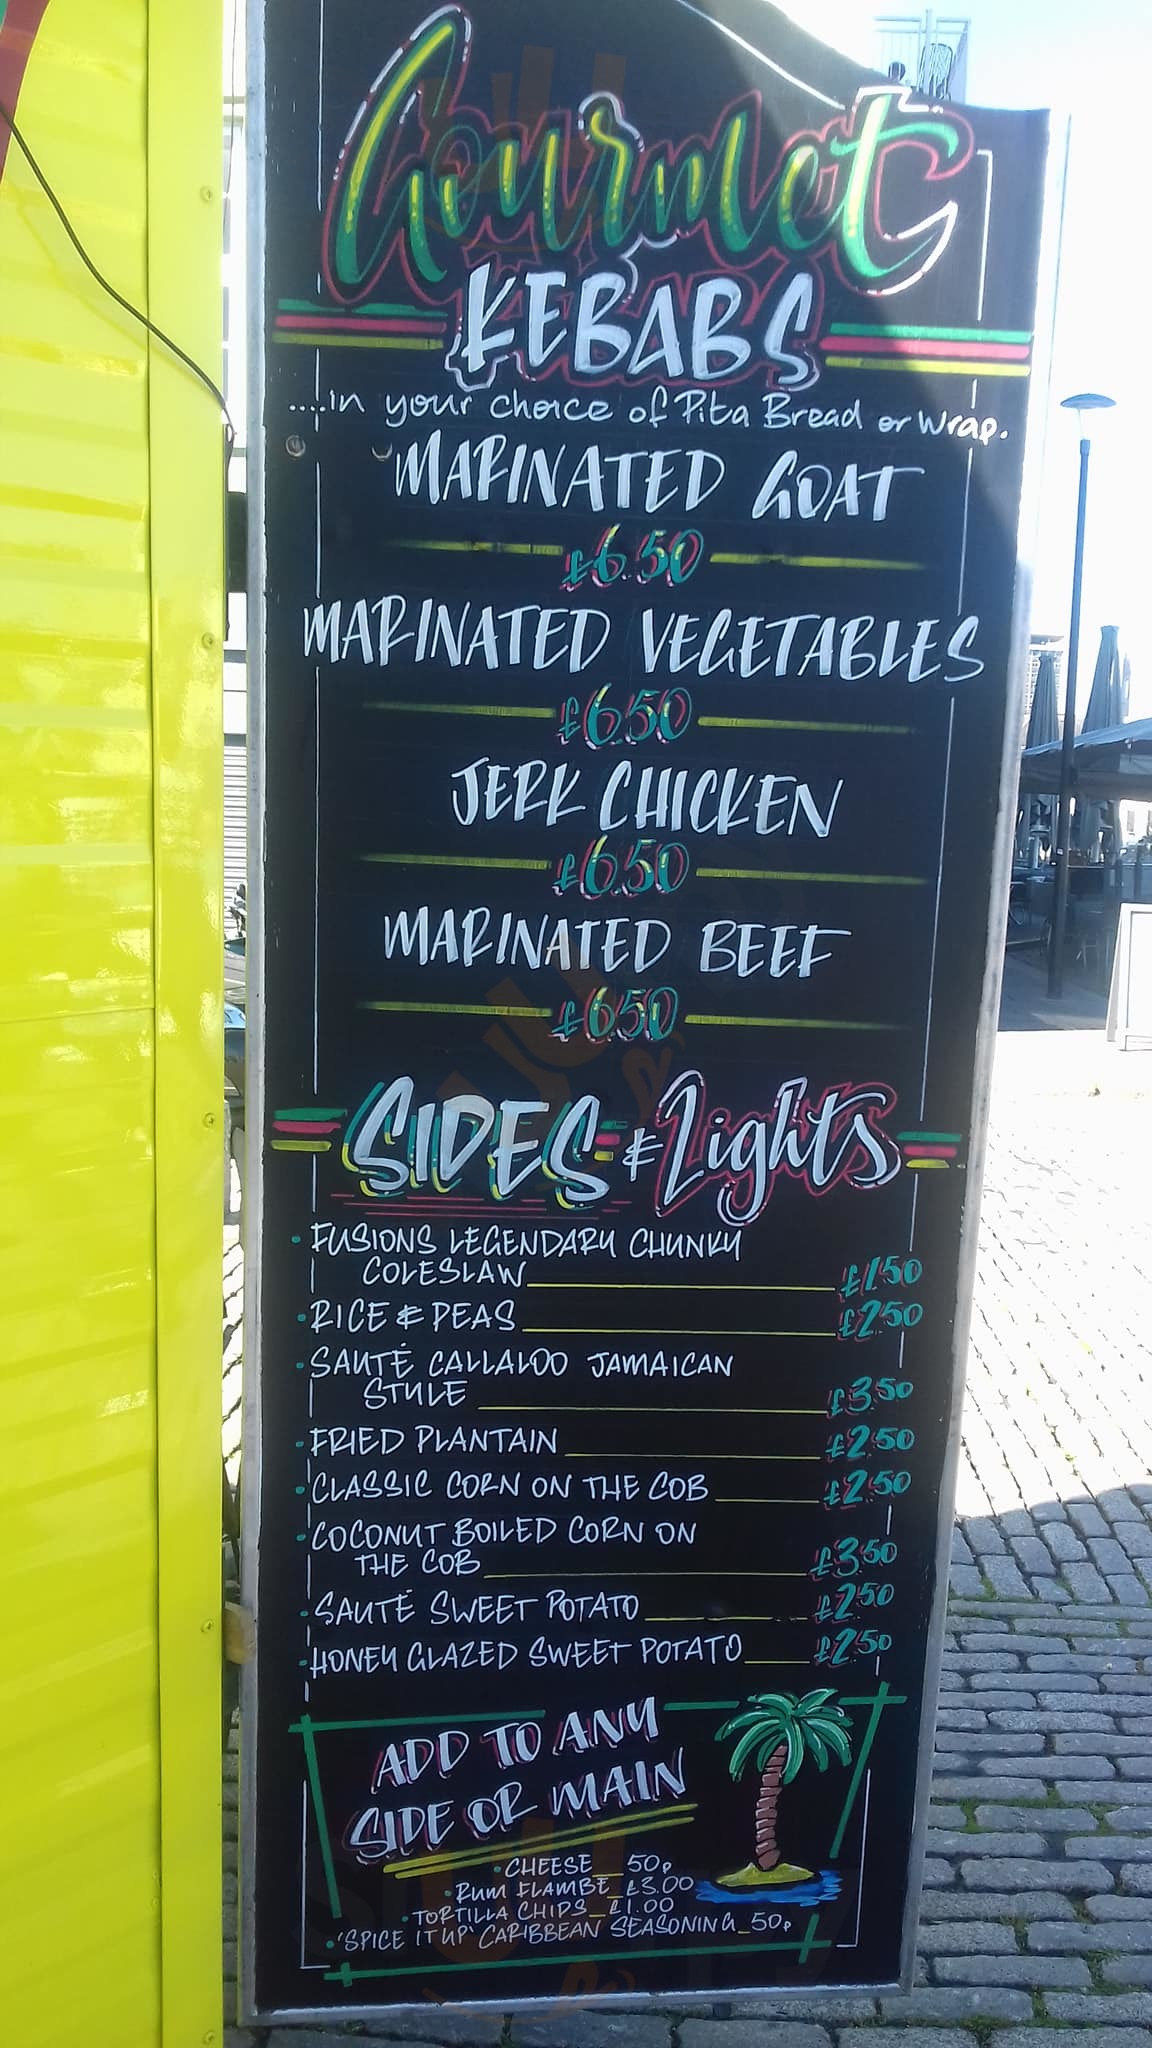 Gourmet
KEBABS
....in your choice of Pita Bread or Wrap.
MARINATED GOAT
£6.50
MARINATED VEGETABLES
£6.50
JERK CHICKEN
£6.50
MARINATED BEEF
£6.50
SIDES & Lights
• FUSIONS LEGENDARY CHUNKY
COLESLAW £1.50
• RICE & PEAS £2.50
• SAUTÉ CALLALOO JAMAICAN
STYLE £3.50
• FRIED PLANTAIN £2.50
• CLASSIC CORN ON THE COB £2.50
• COCONUT BOILED CORN ON
THE COB £3.50
• SAUTÉ SWEET POTATO £2.50
• HONEY GLAZED SWEET POTATO £2.50
ADD TO ANY
SIDE OR MAIN
• CHEESE 50p
• RUM FLAMBE £3.00
• TORTILLA CHIPS £1.00
• 'SPICE IT UP' CARIBBEAN SEASONING 50p